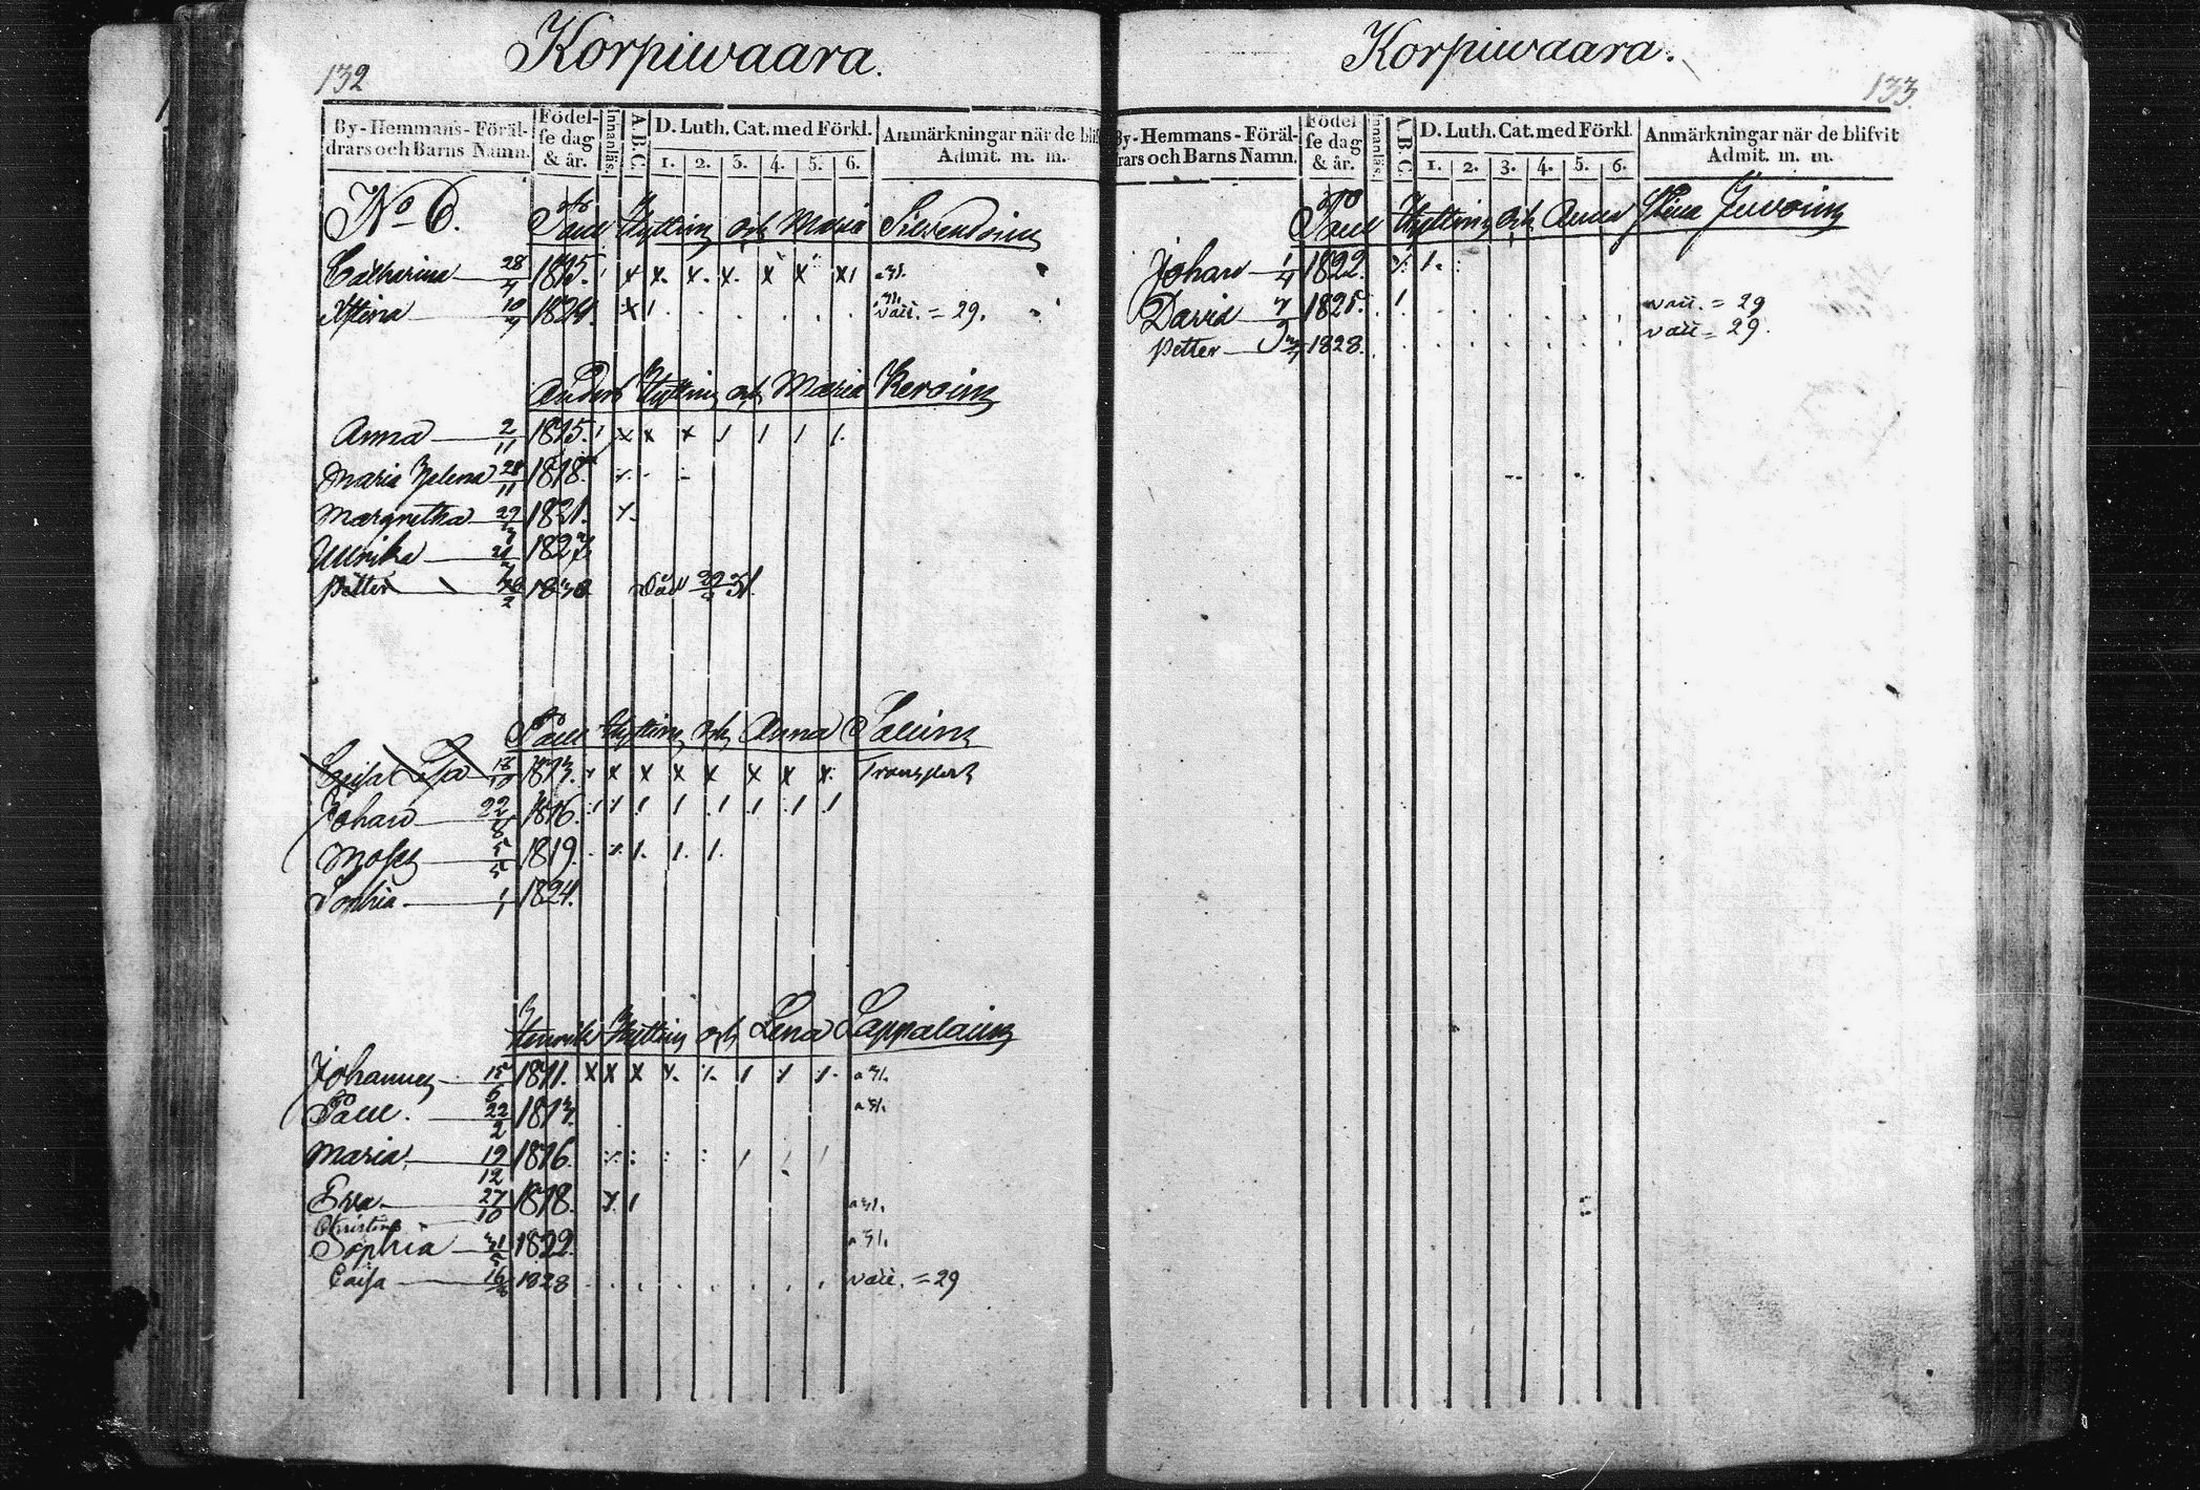 132
Korpiwaara.
By-Hemmans-Föräl-
drars och Barns Namn.
Födel-
se dag
& år.
Innanläs.
A.B.C.
D. Luth. Cat. med Förkl.
1. 2. 3. 4. 5. 6.
Anmärkningar när de blif
Admit. m. m.
No 6. Paul Hyttin och Maria
Catharina 28/4 1815. ' x x. x. x. x x x1
Stina 10/9 1824. x 1 vacc. = 29.
Anders Hyttin och Maria Keroin
Anna 2/11 1815. ' x x x / / / /.
Maria Helena 28/11 1818.
Margretha 1821.
Ullrika 1827
Petter 1830
Paul Hyttin och Anna
Caisa Lisa 1813. x x x x x x x. Transport
Johan 22/8 1816.
Moses 5/5 1819.
Sophia 1/1 1824.
Henrik Hyttin och Lena Lappalain
Johannes 15/6 1811. x x x
Paul. 22/2 1813.
Maria 19/12 1816.
Eva 27/10 1818.
Christina
Sophia 1822.
Caisa 1828 vacc. = 29
Korpiwaara.
133
By-Hemmans-Föräl-
rars och Barns Namn.
Födel
se dag
& år.
Innanläs.
A.B.C.
D. Luth. Cat. med Förkl.
1. 2. 3. 4. 5. 6.
Anmärkningar när de blifvit
Admit. m. m.
Paul Hyttin och Anna Stina Juvoin
Johan 1/4 1822.
David 1825. vacc. = 29
Petter 1828. vacc = 29.